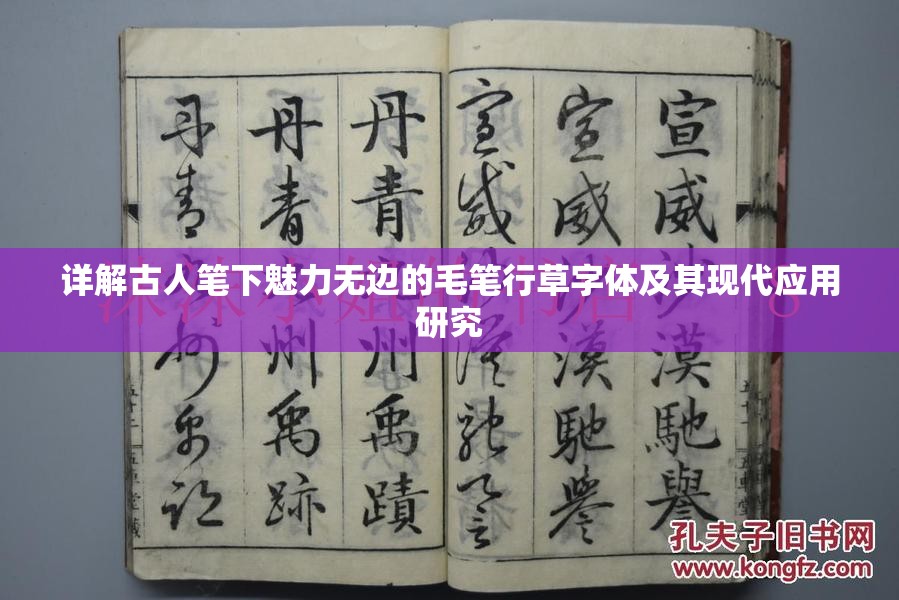 宣威漠馳譽
宣威漠馳譽
宣威漠馳譽
丹青州禹蹟
丹青州禹跡
丹青州禹跡
五車堂藏
详解古人笔下魅力无边的毛笔行草字体及其现代应用
研究
孔夫子旧书网
www.kongfz.com